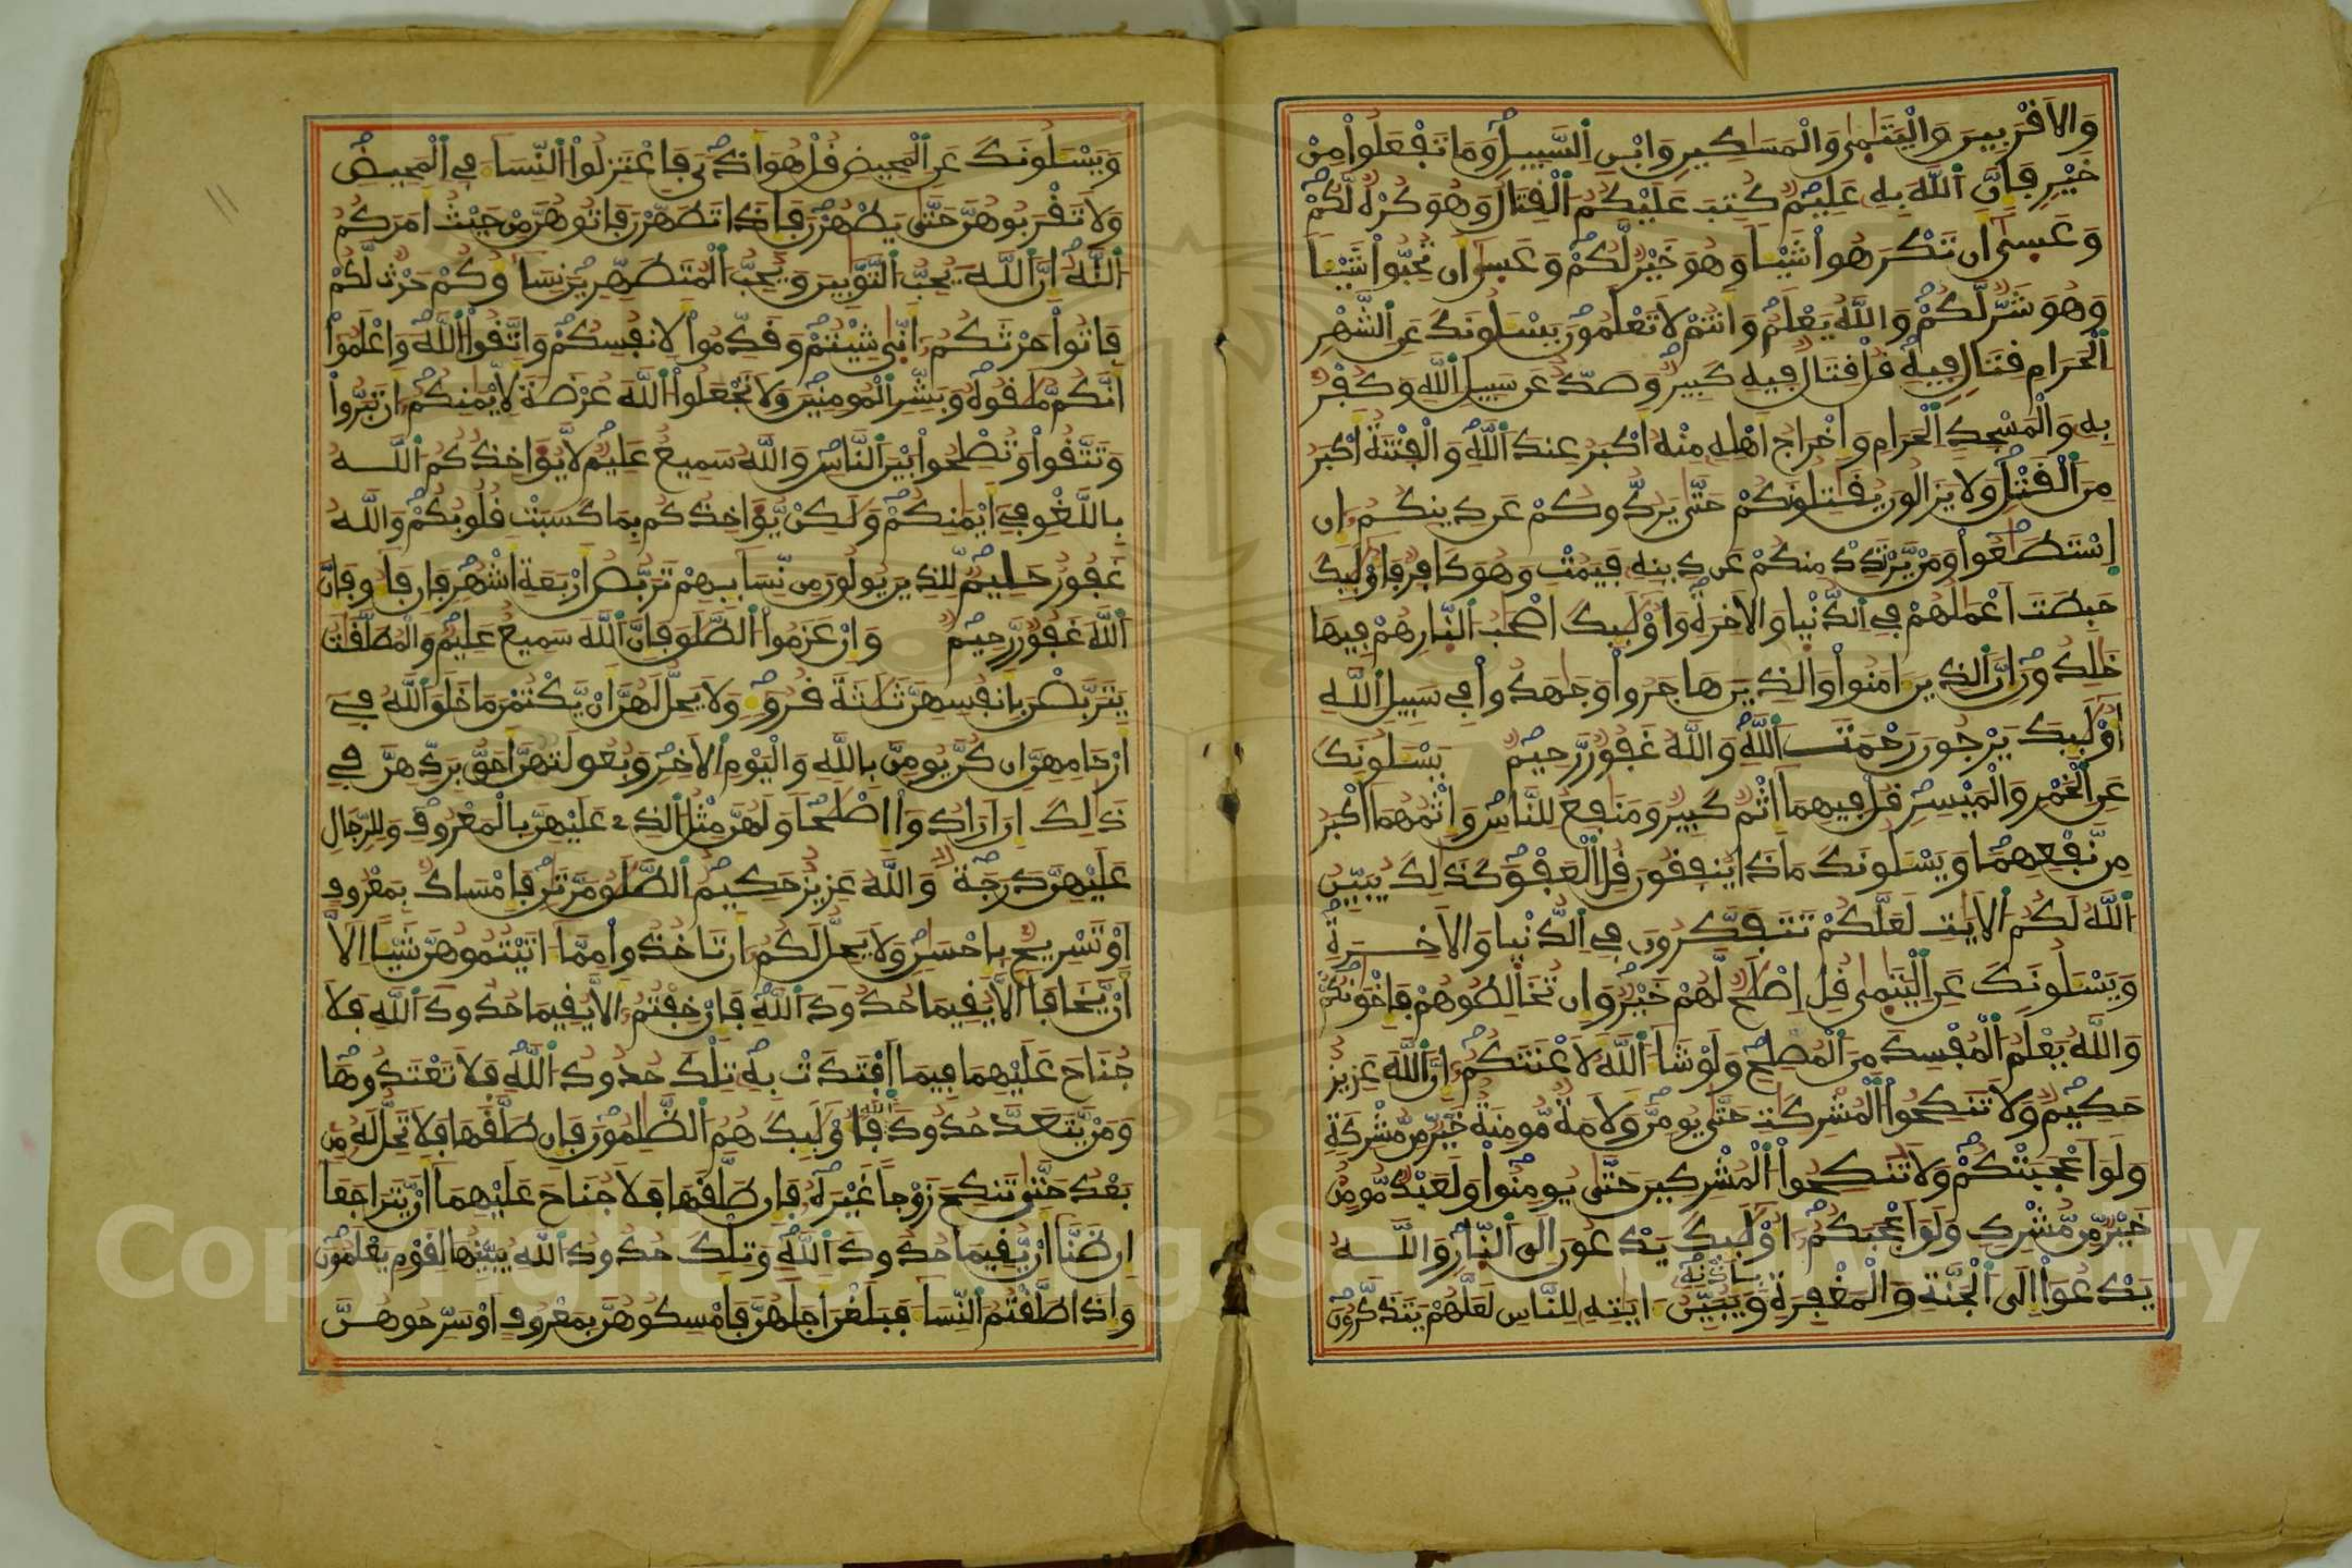 وَالاَقْرَبِينَ وَالْيَتَٰمٰى وَالْمَسَٰكِينِ وَابْنِ اِ۬لسَّبِيلِۖ وَمَا تَفْعَلُواْ مِنْ
خَيْرٖ فَإِنَّ اَ۬للَّهَ بِهِۦ عَلِيمٞۖ كُتِبَ عَلَيْكُمُ اُ۬لْقِتَالُ وَهُوَ كُرْهٞ لَّكُمْۖ
وَعَسٰىٓ أَن تَكْرَهُواْ شَيْـٔاٗ وَهُوَ خَيْرٞ لَّكُمْۖ وَعَسٰىٓ أَن تُحِبُّواْ شَيْـٔاٗ
وَهُوَ شَرّٞ لَّكُمْۖ وَاللَّهُ يَعْلَمُ وَأَنتُمْ لاَ تَعْلَمُونَۖ يَسْـَٔلُونَكَ عَنِ اِ۬لشَّهْرِ
اِ۬لْحَرَامِ قِتَالٖ فِيهِۖ قُلْ قِتَالٞ فِيهِ كَبِيرٞۖ وَصَدٌّ عَن سَبِيلِ اِ۬للَّهِ وَكُفْرُۢ
بِهِۦ وَالْمَسْجِدِ اِ۬لْحَرَامِ وَإِخْرَاجُ أَهْلِهِۦ مِنْهُ أَكْبَرُ عِندَ اَ۬للَّهِۖ وَالْفِتْنَةُ أَكْبَرُ
مِنَ اَ۬لْقَتْلِۖ وَلاَ يَزَالُونَ يُقَٰتِلُونَكُمْ حَتَّىٰ يَرُدُّوكُمْ عَن دِينِكُمُۥٓ إِنِ
اِ۪سْتَطَٰعُواْۖ وَمَنْ يَّرْتَدِدْ مِنكُمْ عَن دِينِهِۦ فَيَمُتْ وَهُوَ كَافِرٞ فَأُوْلَٰٓئِكَ
حَبِطَتَ اَعْمَٰلُهُمْ فِي اِ۬لدُّنْيَا وَالاَخِرَةِۖ وَأُوْلَٰٓئِكَ أَصْحَٰبُ اُ۬لنَّارِ هُمْ فِيهَا
خَٰلِدُونَۖ إِنَّ اَ۬لذِينَ ءَامَنُواْ وَالذِينَ هَاجَرُواْ وَجَٰهَدُواْ فِي سَبِيلِ اِ۬للَّهِ
أُوْلَٰٓئِكَ يَرْجُونَ رَحْمَتَ اَ۬للَّهِۖ وَاللَّهُ غَفُورٞ رَّحِيمٞۖ يَسْـَٔلُونَكَ
عَنِ اِ۬لْخَمْرِ وَالْمَيْسِرِۖ قُلْ فِيهِمَآ إِثْمٞ كَبِيرٞ وَمَنَٰفِعُ لِلنَّاسِۖ وَإِثْمُهُمَآ أَكْبَرُ
مِن نَّفْعِهِمَاۖ وَيَسْـَٔلُونَكَ مَاذَا يُنفِقُونَ قُلِ اِ۬لْعَفْوَۖ كَذَٰلِكَ يُبَيِّنُ
اُ۬للَّهُ لَكُمُ اُ۬لاَيَٰتِ لَعَلَّكُمْ تَتَفَكَّرُونَ فِي اِ۬لدُّنْيَا وَالاَخِرَةِۖ
وَيَسْـَٔلُونَكَ عَنِ اِ۬لْيَتَٰمٰى قُلِ اِصْلَٰحٞ لَّهُمْ خَيْرٞۖ وَإِن تُخَالِطُوهُمْ فَإِخْوَٰنُكُمْۖ
وَاللَّهُ يَعْلَمُ اُ۬لْمُفْسِدَ مِنَ اَ۬لْمُصْلِحِۖ وَلَوْ شَآءَ اَ۬للَّهُ لَأَعْنَتَكُمُۥٓ إِنَّ اَ۬للَّهَ عَزِيزٌ
حَكِيمٞۖ وَلاَ تَنكِحُواْ اُ۬لْمُشْرِكَٰتِ حَتَّىٰ يُومِنَّۖ وَلَأَمَةٞ مُّومِنَةٌ خَيْرٞ مِّن مُّشْرِكَةٖ
وَلَوَ اَعْجَبَتْكُمْۖ وَلاَ تُنكِحُواْ اُ۬لْمُشْرِكِينَ حَتَّىٰ يُومِنُواْۖ وَلَعَبْدٞ مُّومِنٌ
خَيْرٞ مِّن مُّشْرِكٖ وَلَوَ اَعْجَبَكُمُۥٓ أُوْلَٰٓئِكَ يَدْعُونَ إِلَى اَ۬لنَّارِۖ وَاللَّهُ
يَدْعُوٓاْ إِلَى اَ۬لْجَنَّةِ وَالْمَغْفِرَةِ بِإِذْنِهِۦۖ وَيُبَيِّنُ ءَايَٰتِهِۦ لِلنَّاسِ لَعَلَّهُمْ يَتَذَكَّرُونَ
وَيَسْـَٔلُونَكَ عَنِ اِ۬لْمَحِيضِ قُلْ هُوَ أَذىٗ فَاعْتَزِلُواْ اُ۬لنِّسَآءَ فِي اِ۬لْمَحِيضِۖ
وَلاَ تَقْرَبُوهُنَّ حَتَّىٰ يَطْهُرْنَۖ فَإِذَا تَطَهَّرْنَ فَاتُوهُنَّ مِنْ حَيْثُ أَمَرَكُمُ
اُ۬للَّهُۖ إِنَّ اَ۬للَّهَ يُحِبُّ اُ۬لتَّوَّٰبِينَ وَيُحِبُّ اُ۬لْمُتَطَهِّرِينَۖ نِسَآؤُكُمْ حَرْثٞ لَّكُمْ
فَاتُواْ حَرْثَكُمُۥٓ أَنّٰى شِيْتُمْۖ وَقَدِّمُواْ لِأَنفُسِكُمْۖ وَاتَّقُواْ اُ۬للَّهَۖ وَاعْلَمُوٓاْ
أَنَّكُم مُّلَٰقُوهُۖ وَبَشِّرِ اِ۬لْمُومِنِينَۖ وَلاَ تَجْعَلُواْ اُ۬للَّهَ عُرْضَةٗ لِّأَيْمَٰنِكُمُۥٓ أَن تَبَرُّواْ
وَتَتَّقُواْ وَتُصْلِحُواْ بَيْنَ اَ۬لنَّاسِۖ وَاللَّهُ سَمِيعٌ عَلِيمٞۖ لاَّ يُؤَاخِذُكُمُ اُ۬للَّهُ
بِاللَّغْوِ فِيٓ أَيْمَٰنِكُمْۖ وَلَٰكِنْ يُّؤَاخِذُكُم بِمَا كَسَبَتْ قُلُوبُكُمْۖ وَاللَّهُ
غَفُورٌ حَلِيمٞۖ لِّلذِينَ يُولُونَ مِن نِّسَآئِهِمْ تَرَبُّصُ أَرْبَعَةِ أَشْهُرٖۖ فَإِن فَآءُو فَإِنَّ
اَ۬للَّهَ غَفُورٞ رَّحِيمٞ وَإِنْ عَزَمُواْ اُ۬لطَّلَٰقَ فَإِنَّ اَ۬للَّهَ سَمِيعٌ عَلِيمٞۖ وَالْمُطَلَّقَٰتُ
يَتَرَبَّصْنَ بِأَنفُسِهِنَّ ثَلَٰثَةَ قُرُوٓءٖۖ وَلاَ يَحِلُّ لَهُنَّ أَنْ يَّكْتُمْنَ مَا خَلَقَ اَ۬للَّهُ فِيٓ
أَرْحَامِهِنَّ إِن كُنَّ يُومِنَّ بِاللَّهِ وَالْيَوْمِ اِ۬لاَخِرِۖ وَبُعُولَتُهُنَّ أَحَقُّ بِرَدِّهِنَّ فِي
ذَٰلِكَ إِنَ اَرَادُوٓاْ إِصْلَٰحاٗۖ وَلَهُنَّ مِثْلُ اُ۬لذِي عَلَيْهِنَّ بِالْمَعْرُوفِۖ وَلِلرِّجَالِ
عَلَيْهِنَّ دَرَجَةٞۖ وَاللَّهُ عَزِيزٌ حَكِيمٞۖ اِ۬لطَّلَٰقُ مَرَّتَٰنِۖ فَإِمْسَاكُۢ بِمَعْرُوفٍ
اَوْ تَسْرِيحُۢ بِإِحْسَٰنٖۖ وَلاَ يَحِلُّ لَكُمُۥٓ أَن تَاخُذُواْ مِمَّآ ءَاتَيْتُمُوهُنَّ شَيْـٔاً اِلَّآ
أَنْ يَّخَافَآ أَلاَّ يُقِيمَا حُدُودَ اَ۬للَّهِۖ فَإِنْ خِفْتُمُۥٓ أَلاَّ يُقِيمَا حُدُودَ اَ۬للَّهِ فَلاَ
جُنَاحَ عَلَيْهِمَا فِيمَا اَ۪فْتَدَتْ بِهِۦۖ تِلْكَ حُدُودُ اُ۬للَّهِ فَلاَ تَعْتَدُوهَاۖ
وَمَنْ يَّتَعَدَّ حُدُودَ اَ۬للَّهِ فَأُوْلَٰٓئِكَ هُمُ اُ۬لظَّٰلِمُونَۖ فَإِن طَلَّقَهَا فَلاَ تَحِلُّ لَهُۥ مِنۢ
بَعْدُ حَتَّىٰ تَنكِحَ زَوْجاً غَيْرَهُۥۖ فَإِن طَلَّقَهَا فَلاَ جُنَاحَ عَلَيْهِمَآ أَنْ يَّتَرَاجَعَآ
إِن ظَنَّآ أَنْ يُّقِيمَا حُدُودَ اَ۬للَّهِۖ وَتِلْكَ حُدُودُ اُ۬للَّهِ يُبَيِّنُهَا لِقَوْمٖ يَعْلَمُونَ
وَإِذَا طَلَّقْتُمُ اُ۬لنِّسَآءَ فَبَلَغْنَ أَجَلَهُنَّ فَأَمْسِكُوهُنَّ بِمَعْرُوفٍ اَوْ سَرِّحُوهُنَّ
Copyright © King Saud University